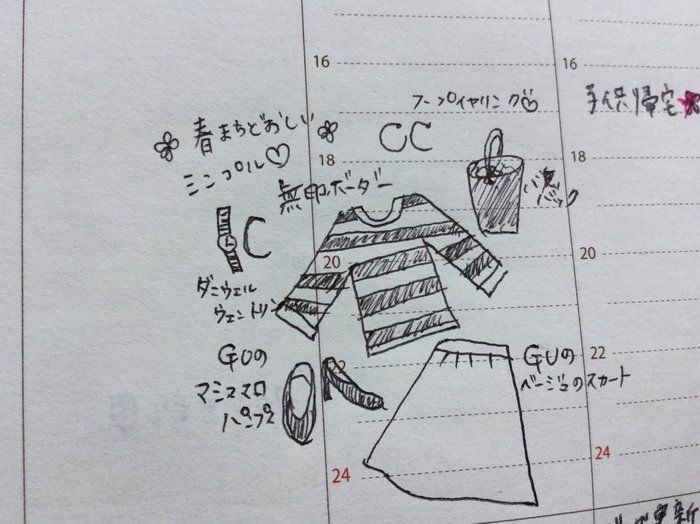 16
16
フープイヤリング♡
春まちどおしい
シンプル♡
CC
18
18
無印ボーダー
C
20
20
ダニウェル
ウェントリン
GUの
マシュマロ
パンプス
22
22
GUの
ベージュのスカート
24
24
帰宅
更新